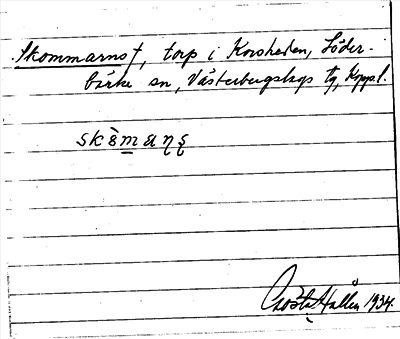 Skommarns †, torp i Korsheden, Söder-
bärke sn, Västerbergslags tg, Kopp. l.
skò̱manʂ
Gösta Hallén 1934.